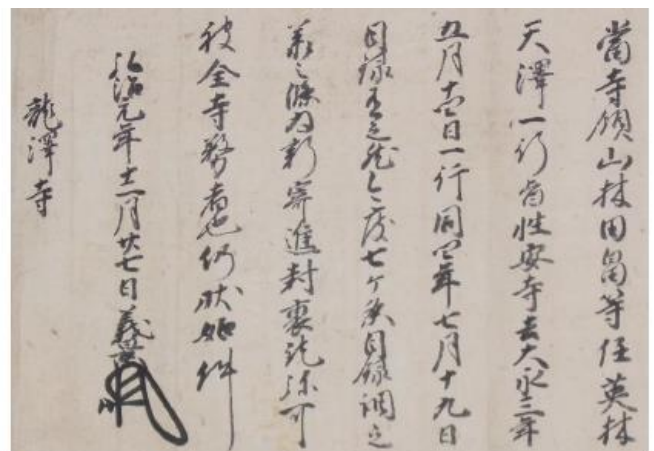 當寺領山林田畠等任英林
天澤一行旨性安寺去大永二年
五月十日一行同四年七月十九日
目録有之然今度七ヶ所目録調之
義之條為新寄進封裏訖弥可
被全寺務者也仍状如件
弘治元年十二月廿七日義景
龍澤寺